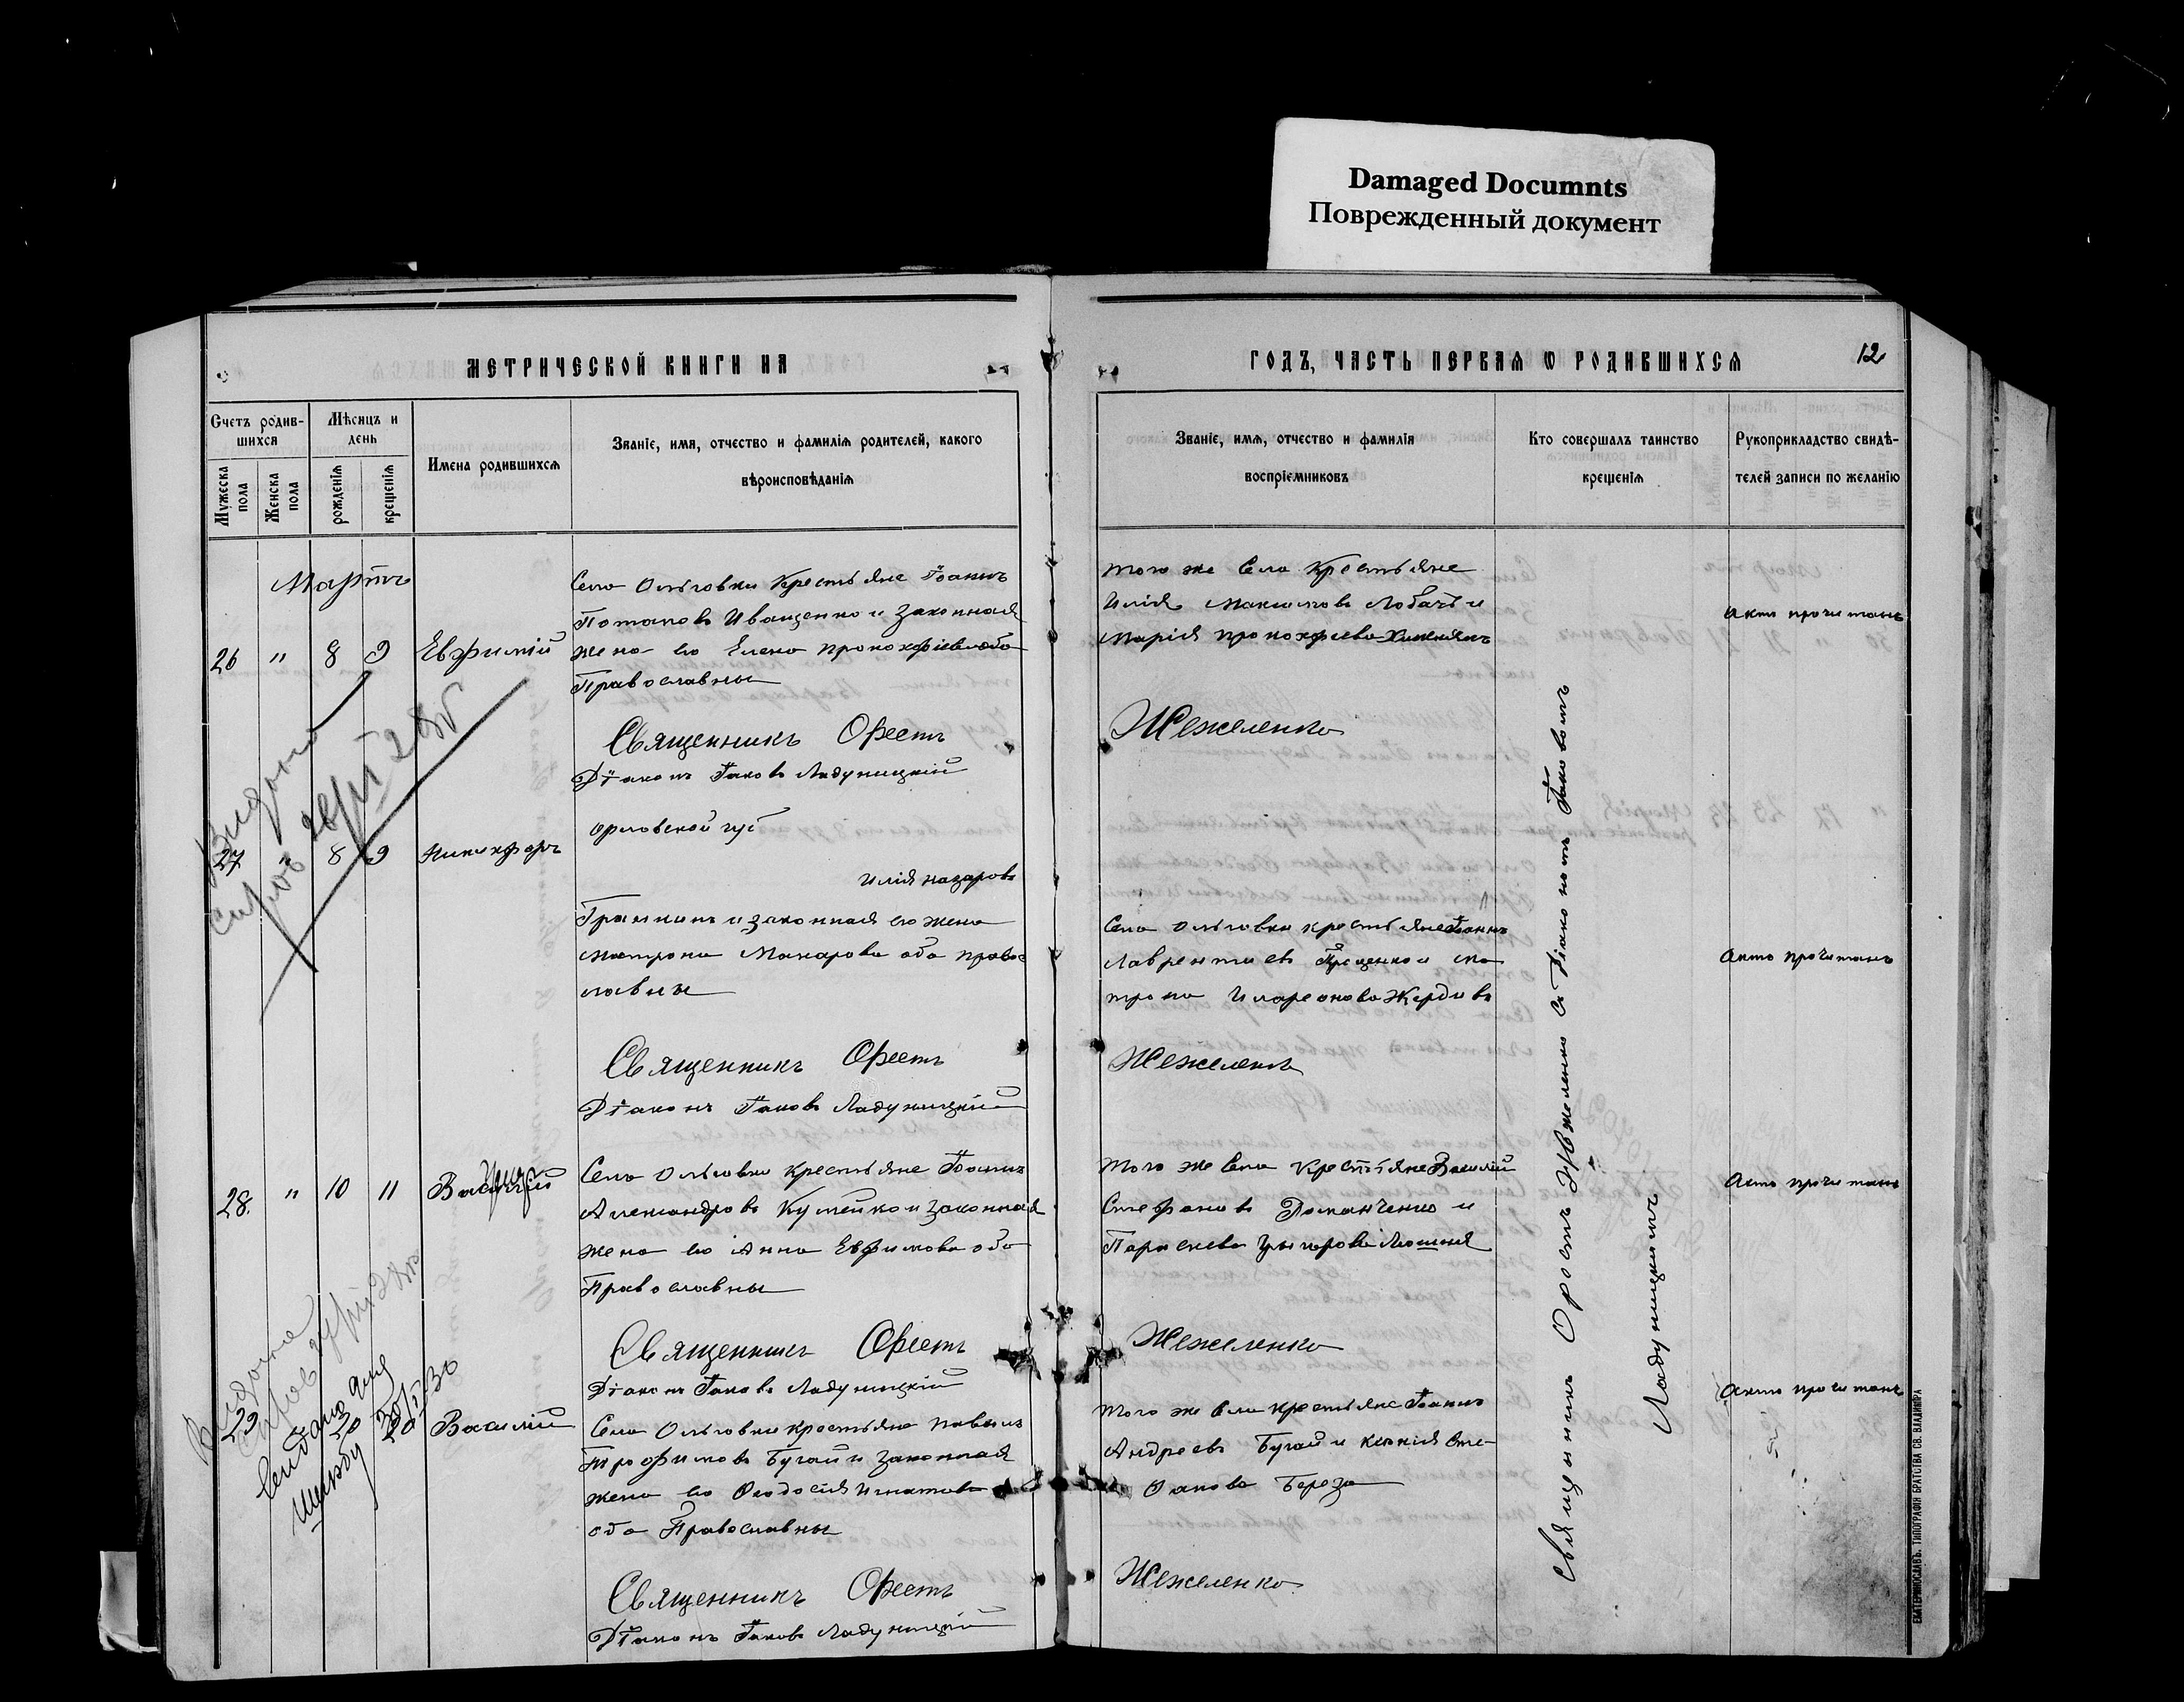 Damaged Documnts
Поврежденный документ
МЕТРИЧЕСКОЙ КНИГИ НА
ГОДЪ, ЧАСТЬ ПЕРВАЯ О РОДИВШИХСЯ
12
Счетъ родив-
шихся
Мужеска
пола
Женска
пола
Мѣсяцъ и
день
рожденія
крещенія
Имена родившихся
Званіе, имя, отчество и фамилія родителей, какого
вѣроисповѣданія
Званіе, имя, отчество и фамилія
воспріемниковъ
Кто совершалъ таинство
крещенія
Рукоприкладство свидѣ-
телей записи по желанію
Мартъ
26 " 8 9 Евфимій
Села Ольговки Крестьяне Іоаннъ
Потаповъ Иващенко и законная
жена его Елена Прокофіева оба
Православны
Священникъ Орестъ
Діаконъ Іаковъ Ладуницкій
того же Села Крестьяне
Илія Максимовъ Лобачъ и
Марія Прокофіева
Жежеленко
Актъ прочитанъ
27 " 8 9 Никифоръ
Орловской губ
Илія Назаровъ
и законная его жена
Матрона Макарова оба право
славны
Священникъ Орестъ
Діаконъ Іаковъ Ладуницкій
Села Ольговки крестьяне Іоаннъ
Лаврентіевъ и Ма
трона Иларіонова
Жежеленко
Актъ прочитанъ
28. " 10 11 Василій
Села Ольговки крестьяне Іоаннъ
Александровъ и законная
жена его Анна Евфимова оба
Православны
Священникъ Орестъ
Діаконъ Іаковъ Ладуницкій
того же Села Крестьяне Василій
Стефановъ Романченко и
Параскева
Жежеленко
Актъ прочитанъ
29 20 20 Василій
Села Ольговки крестьяне Павелъ
Трофимовъ Бугай и законная
жена его Ѳеодосія Игнатова
оба Православны
Священникъ Орестъ
Діаконъ Іаковъ Ладуницкій
того же Села крестьяне Іоаннъ
Андреевъ Бугай и Ксенія Сте-
фанова Береза
Жежеленко
Актъ прочитанъ
Священникъ Орестъ Жежеленко съ Діакономъ Іаковомъ
Ладуницкимъ
ЕКАТЕРИНОСЛАВЪ. ТИПОГРАФІЯ БРАТСТВА СВ. ВЛАДИМІРА